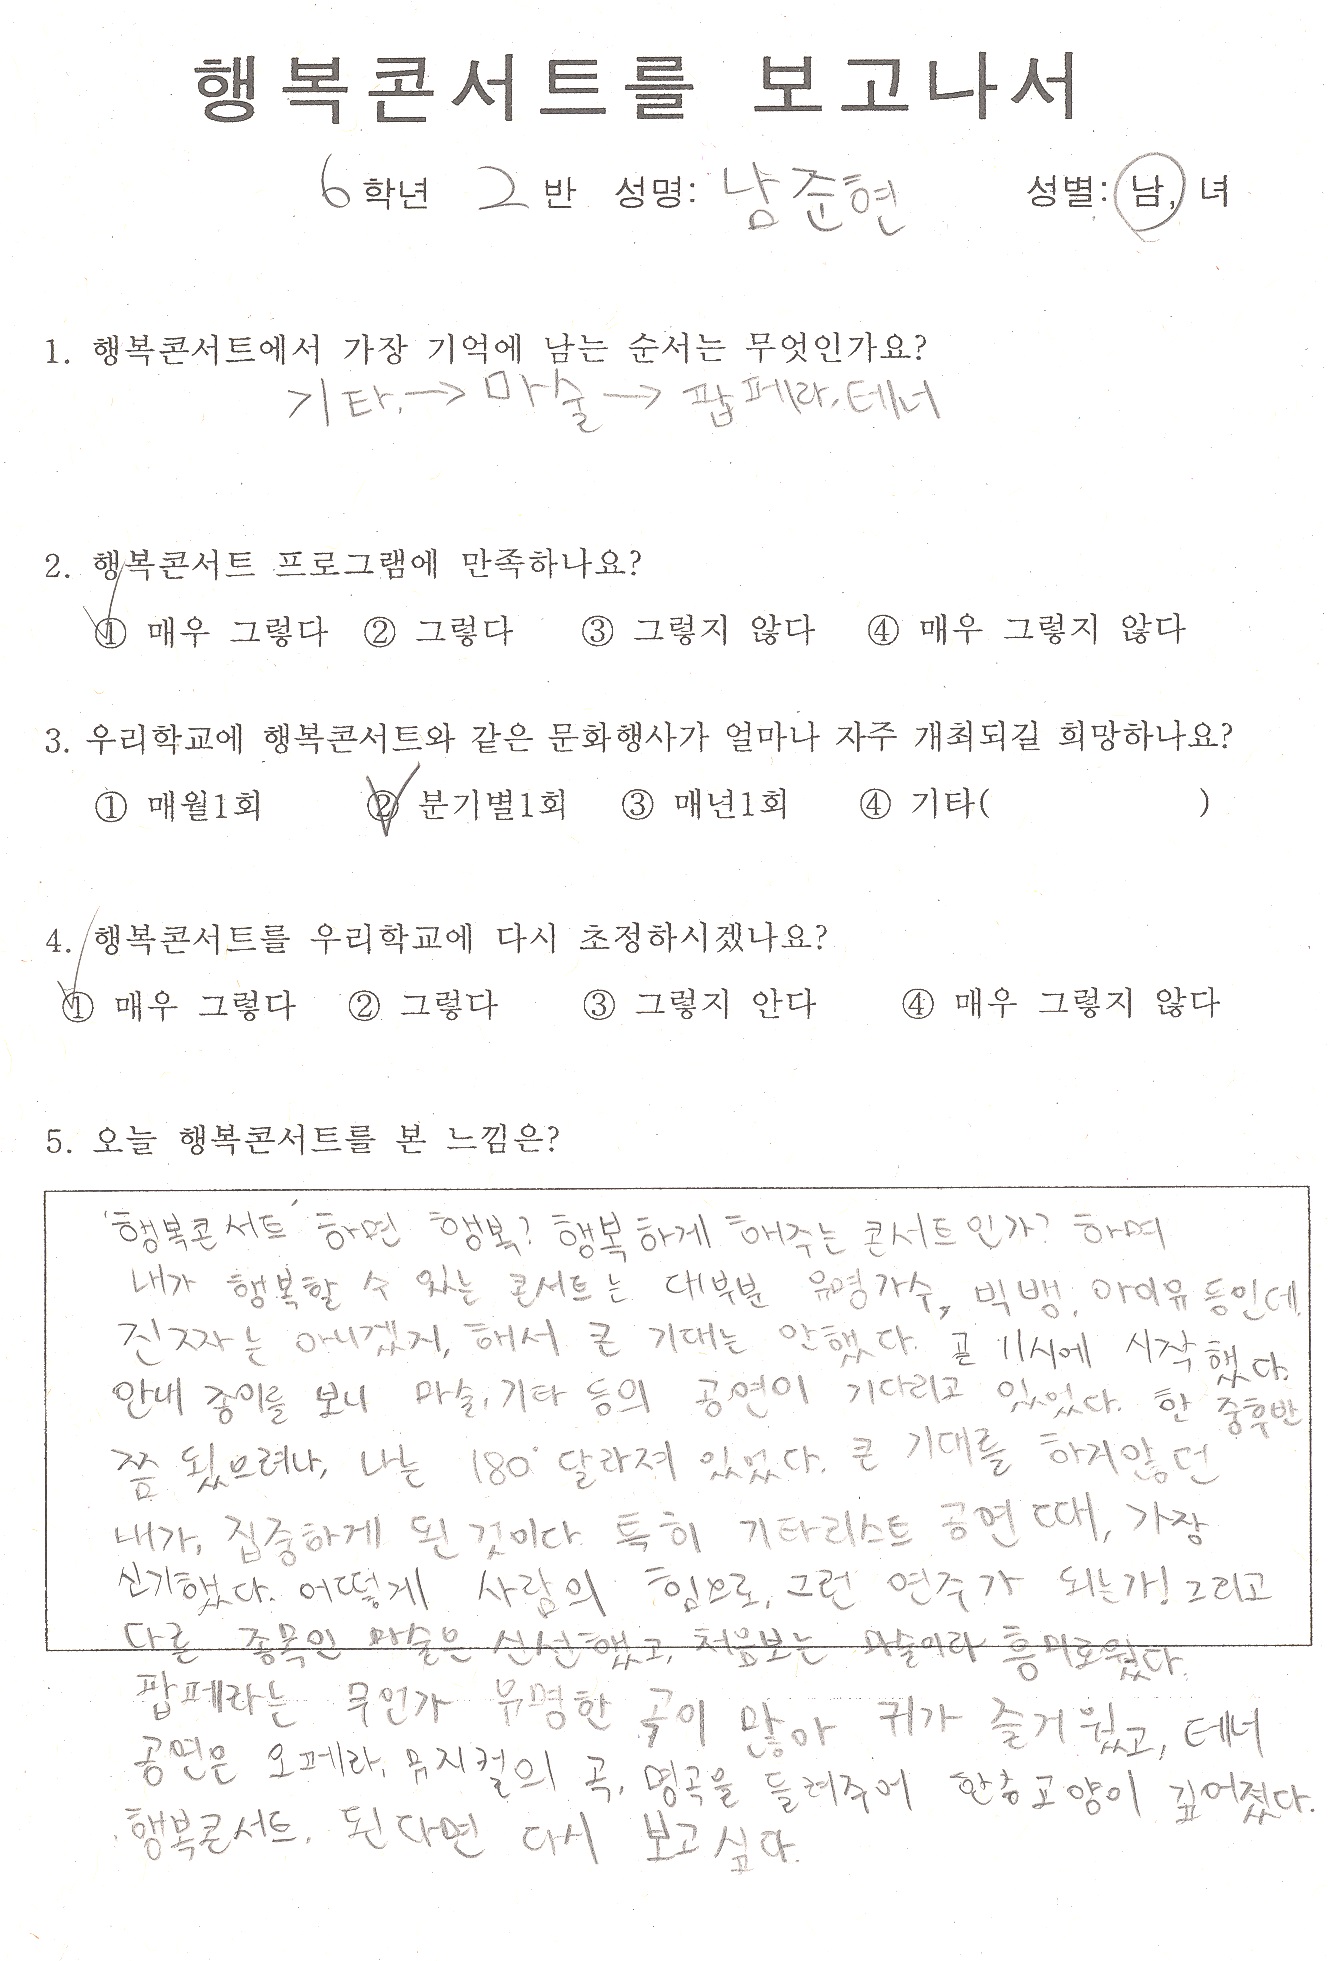 행복콘서트를 보고나서
6학년 2반 성명: 남준현 성별: 남, 녀
1. 행복콘서트에서 가장 기억에 남는 순서는 무엇인가요?
기타. → 마술 → 팝페라, 테너
2. 행복콘서트 프로그램에 만족하나요?
① 매우 그렇다 ② 그렇다 ③ 그렇지 않다 ④ 매우 그렇지 않다
3. 우리학교에 행복콘서트와 같은 문화행사가 얼마나 자주 개최되길 희망하나요?
① 매월1회 ② 분기별1회 ③ 매년1회 ④ 기타( )
4. 행복콘서트를 우리학교에 다시 초정하시겠나요?
① 매우 그렇다 ② 그렇다 ③ 그렇지 안다 ④ 매우 그렇지 않다
5. 오늘 행복콘서트를 본 느낌은?
'행복콘서트' 하면 행복? 행복하게 해주는 콘서트인가? 하며
내가 행복할 수 있는 콘서트는 대부분 유명가수, 빅뱅, 아이유 등인데,
진짜는 아니겠지, 해서 큰 기대는 안했다. 곧 11시에 시작했다.
안내 종이를 보니 마술, 기타 등의 공연이 기다리고 있었다. 한 중후반
쯤 됬으려나, 나는 180° 달라져 있었다. 큰 기대를 하지않던
내가, 집중하게 된 것이다. 특히 기타리스트 공연 때, 가장
신기했다. 어떻게 사람의 힘으로, 그런 연주가 되는가! 그리고
다른 종목인 마술은 신선했고, 처음보는 마술이라 흥미로웠다.
팝페라는 무언가 유명한 곡이 많아 귀가 즐거웠고, 테너
공연은 오페라, 뮤지컬의 곡, 명곡을 들려주어 한층 교양이 깊어졌다.
행복콘서트, 된다면 다시 보고싶다.